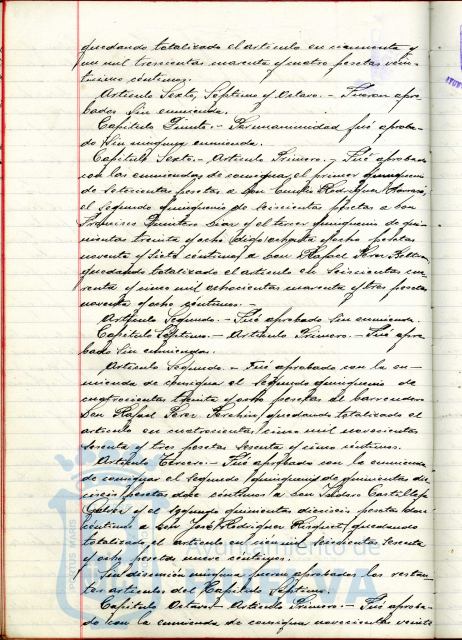 quedando totalizado el artículo en cincuenta y
un mil trescientas cuarenta y cuatro pesetas vein-
tiseis céntimos.
Artículo Sexto, Septimo y Octavo.- Fueron apro-
bados sin enmienda.
Capítulo Quinto.- Permanencia fué aproba-
do sin ninguna enmienda.
Capítulo Sexto.- Artículo Primero.- Fué aprobado
con las enmiendas de consignar el primer quinquenio
de setecientas pesetas a Don Rodriguez
el segundo quinquenio de seiscientas pesetas a Don
Francisco Quintero y el tercer quinquenio de qui-
nientas treinta y ocho (digo) ochenta y ocho pesetas
noventa y siete céntimos a Don Rafael Perez
quedando totalizado el artículo en seiscientas cua-
renta y cinco mil ochocientas cuarenta y tres pesetas
noventa y ocho céntimos.-
Artículo Segundo.- Fué aprobado sin enmienda.
Capítulo Septimo.- Artículo Primero.- Fué apro-
bado sin enmiendas.
Artículo Segundo.- Fué aprobado con la en-
mienda de consignar el segundo quinquenio de
cuatrocientas treinta y ocho pesetas al barrendero
Don Rafael Perez quedando totalizado el
artículo en cuatrocientas cinco mil novecientas
sesenta y tres pesetas sesenta y cinco céntimos.
Artículo Tercero.- Fué aprobado con la enmienda
de consignar el segundo quinquenio de quinientas die-
ciseis pesetas doce céntimos a Don Isidoro Castilleja
Galvez y el segundo quinquenio dieciseis pesetas doce
céntimos a Don José Rodriguez quedando
totalizado el artículo en cien mil seiscientas sesenta
y ocho pesetas nueve céntimos.
Sin discusión ninguna fueron aprobados los restan-
tes artículos del Capítulo Septimo.
Capítulo Octavo.- Artículo Primero.- Fué aproba-
do con la enmienda de consignar novecientas veinte
Ayuntamiento de
HUELVA